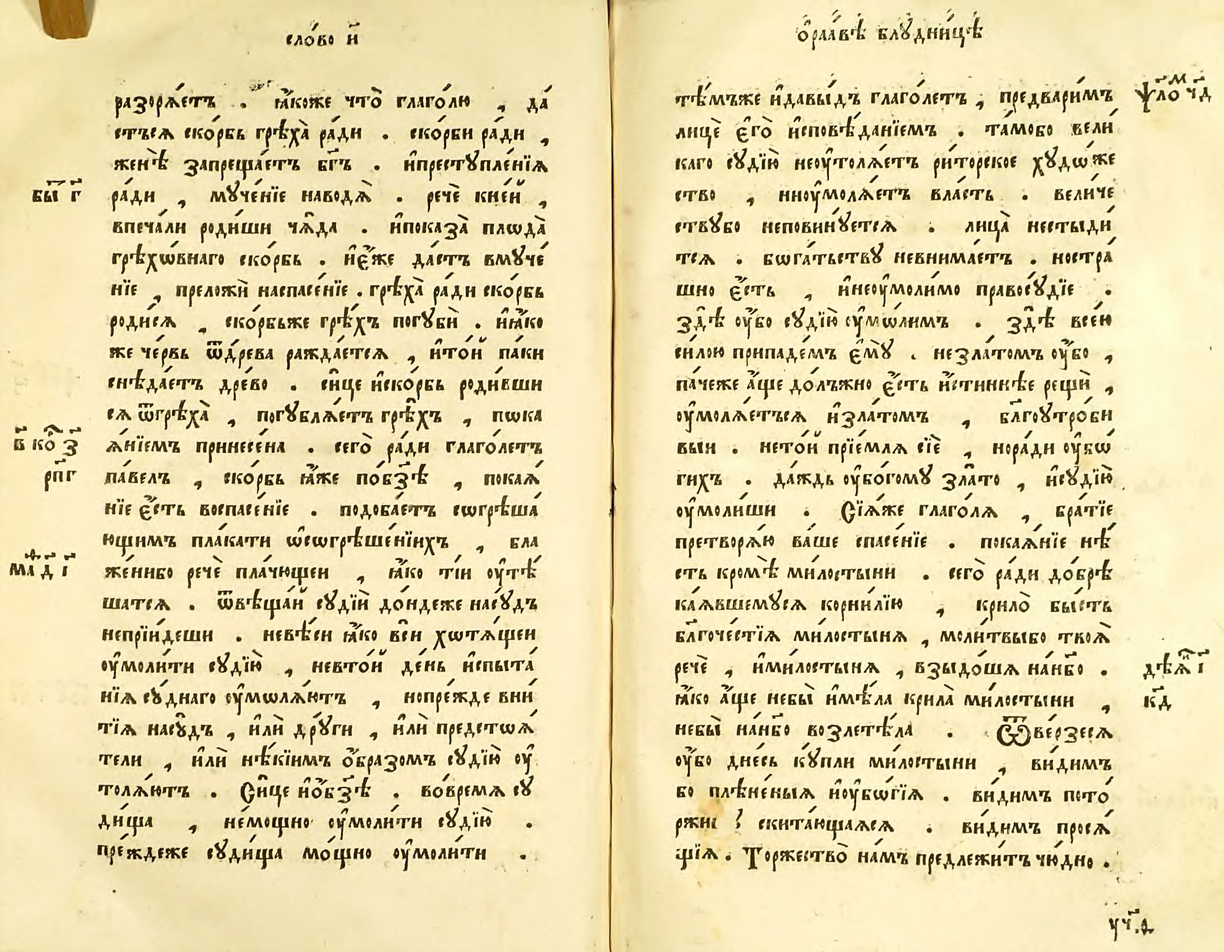 сло́во и҃
разорѧ́етъ . ꙗ҆́коже что̀ глаго́лю , да́
стьсѧ ско́рбь грѣха̀ ра́ди . ско́рби ра́ди ,
женѣ̀ запреща́етъ бг҃ъ . и҆преступле́нїѧ
бы́ г҃
ра́ди , муче́нїе наводѧ̀ . речѐ кне́й ,
впеча́ли роди́ши чѧ̑да . и҆показа̀ плѡда̀
грѣхѡ́внаго ско́рбь . ю҆́же да́стъ вмуче́
нїе , преложѝ наспасе́нїе . грѣха̀ ра́ди ско́рбь
роди́сѧ , ско́рбьже грѣ́хъ погубѝ . и҆ꙗ҆́ко
же че́рвь ѿдре́ва ражда́етсѧ , и҆то́й па́ки
снѣда́етъ дре́во . си́це и҆ско́рбь роди́вши
сѧ ѿгрѣха̀ , погублѧ́етъ грѣ́хъ , пѡка
в҃ ко́ з҃
ѧ́нїемъ принесе́на . сего̀ ра́ди глаго́летъ
рп҃г
па́велъ , ско́рбь ꙗ҆́же побз҃ѣ , покаѧ́
нїе є҆́сть воспасе́нїе . подоба́етъ сѡгрѣша́
ющимъ пла́кати ѡ҆сѡгрѣше́нїихъ , бла
маѳ д҃ і҃
же́нибо речѐ пла́чющеи , ꙗ҆́ко ті́и оу҆тѣ́
шатсѧ . ѿвѣща́й судїѝ до́ндеже насу́дъ
непрїи́деши . невѣ́си ꙗ҆́ко всѝ хотѧ́щеи
оу҆моли́ти судїю̀ , невто́й де́нь и҆спыта́
нїѧ су́днаго оу҆мѡлѧ́ютъ , нопре́жде вни
тїѧ̀ насу́дъ , и҆лѝ дру́ги , и҆лѝ предстѡѧ́
тели , и҆лѝ нѣ́кїимъ ѻ҆́бразомъ судїю̀ оу҆
толѧ́ютъ . Си́це и҆ѻ҆бз҃ѣ . вовре́мѧ су
ди́ща , немо́щно оу҆моли́ти судїю̀ .
пре́ждеже суди́ща мо́щно оу҆моли́ти .
ѻ҆раа́вѣ блудни́цѣ
тѣ́мъже и҆давы́дъ глаго́летъ , предвари́мъ
ѱало́м ч҃д
лицѐ є҆гѡ̀ и҆сповѣ́данїемъ . та́мобо вели́
каго судїю̀ неоу҆толѧ́етъ ри́торское худо́же
ство , ниоу҆молѧ́етъ вла́сть . вели́че
ствубо неповину́етсѧ . лица̀ нестыди́
тсѧ . бѡга́тьству невнима́етъ . ностра́
шно є҆́сть , и҆неоу҆моли́мо правосу́дїе .
здѣ̀ оу҆́бо судїю̀ оу҆мѡ́лимъ . здѣ̀ все́ю
си́лою припаде́мъ є҆му̀ . незла́томъ оу҆́бо ,
па́чеже а҆́ще до́лъжно є҆́сть и҆́стиннѣе рещѝ ,
оу҆молѧ́етъсѧ и҆зла́томъ , бл҃гоутро́би
выи . нето́й прїе́млѧ сїѐ , нора́ди оу҆бѡ́
гихъ . да́ждь оу҆бо́гому зла́то , и҆судїю̀
оу҆моли́ши . Сїѧ́же глаго́лѧ , бра́тїе
претворѧ́ю ва́ше спасе́нїе . покаѧ́нїе нѣ́
сть кромѣ̀ ми́лостыни . сего̀ ра́ди до́брѣ
каѧ́вшемусѧ корни́лїю , крило̀ бы́сть
бл҃гоче́стїѧ ми́лостынѧ , моли́твыбо твоѧ̀
речѐ , и҆ми́лостынѧ , взыдо́шѧ нан҃бо .
дѣѧ́ і҃
ꙗ҆́ко а҆́ще небы̀ и҆мѣ́ла крила̀ ми́лостыни ,
к҃д
небы̀ нан҃бо возлетѣ́ла . Ѿве́рзесѧ
оу҆́бо дне́сь ку́пли ми́лостыни , ви́димъ
бо плѣне́ныѧ и҆оу҆бѡ́гїѧ . ви́димъ пото́
ржищ скита́ющаѧсѧ . ви́димъ просѧ́
щїѧ . Торжество̀ на́мъ предлежи́тъ чю́дно .